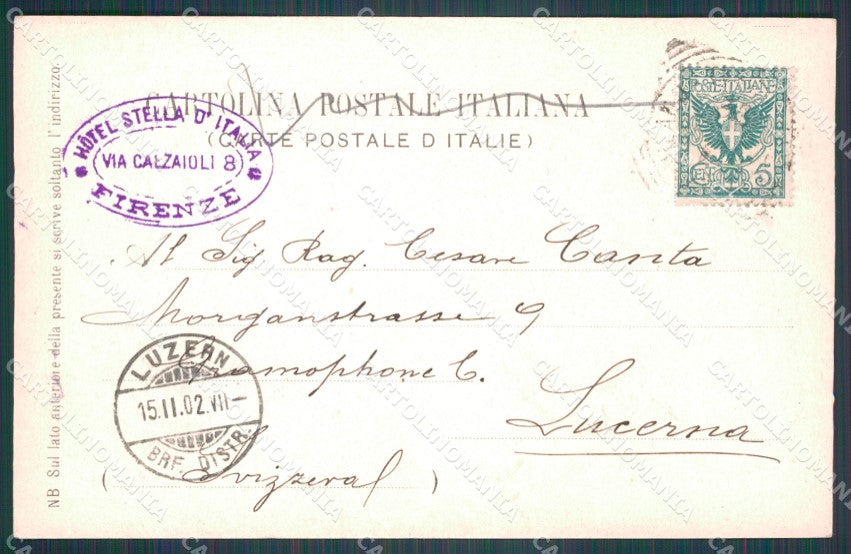 CARTOLINA POSTALE ITALIANA
(CARTE POSTALE D ITALIE)
HÔTEL STELLA D' ITALIA
VIA CALZAIOLI 8
FIRENZE
POSTE·ITALIANE
CEN 5
NB Sul lato anteriore della presente si scrive soltanto l'indirizzo.
Al Sig Rag. Cesare Canta
Morganstrasse 9
Gramophone C.
Lucerna
(Svizzera)
LUZERN
15.II.02.VII—
BRF. DISTR.
CARTOLINOMANIA